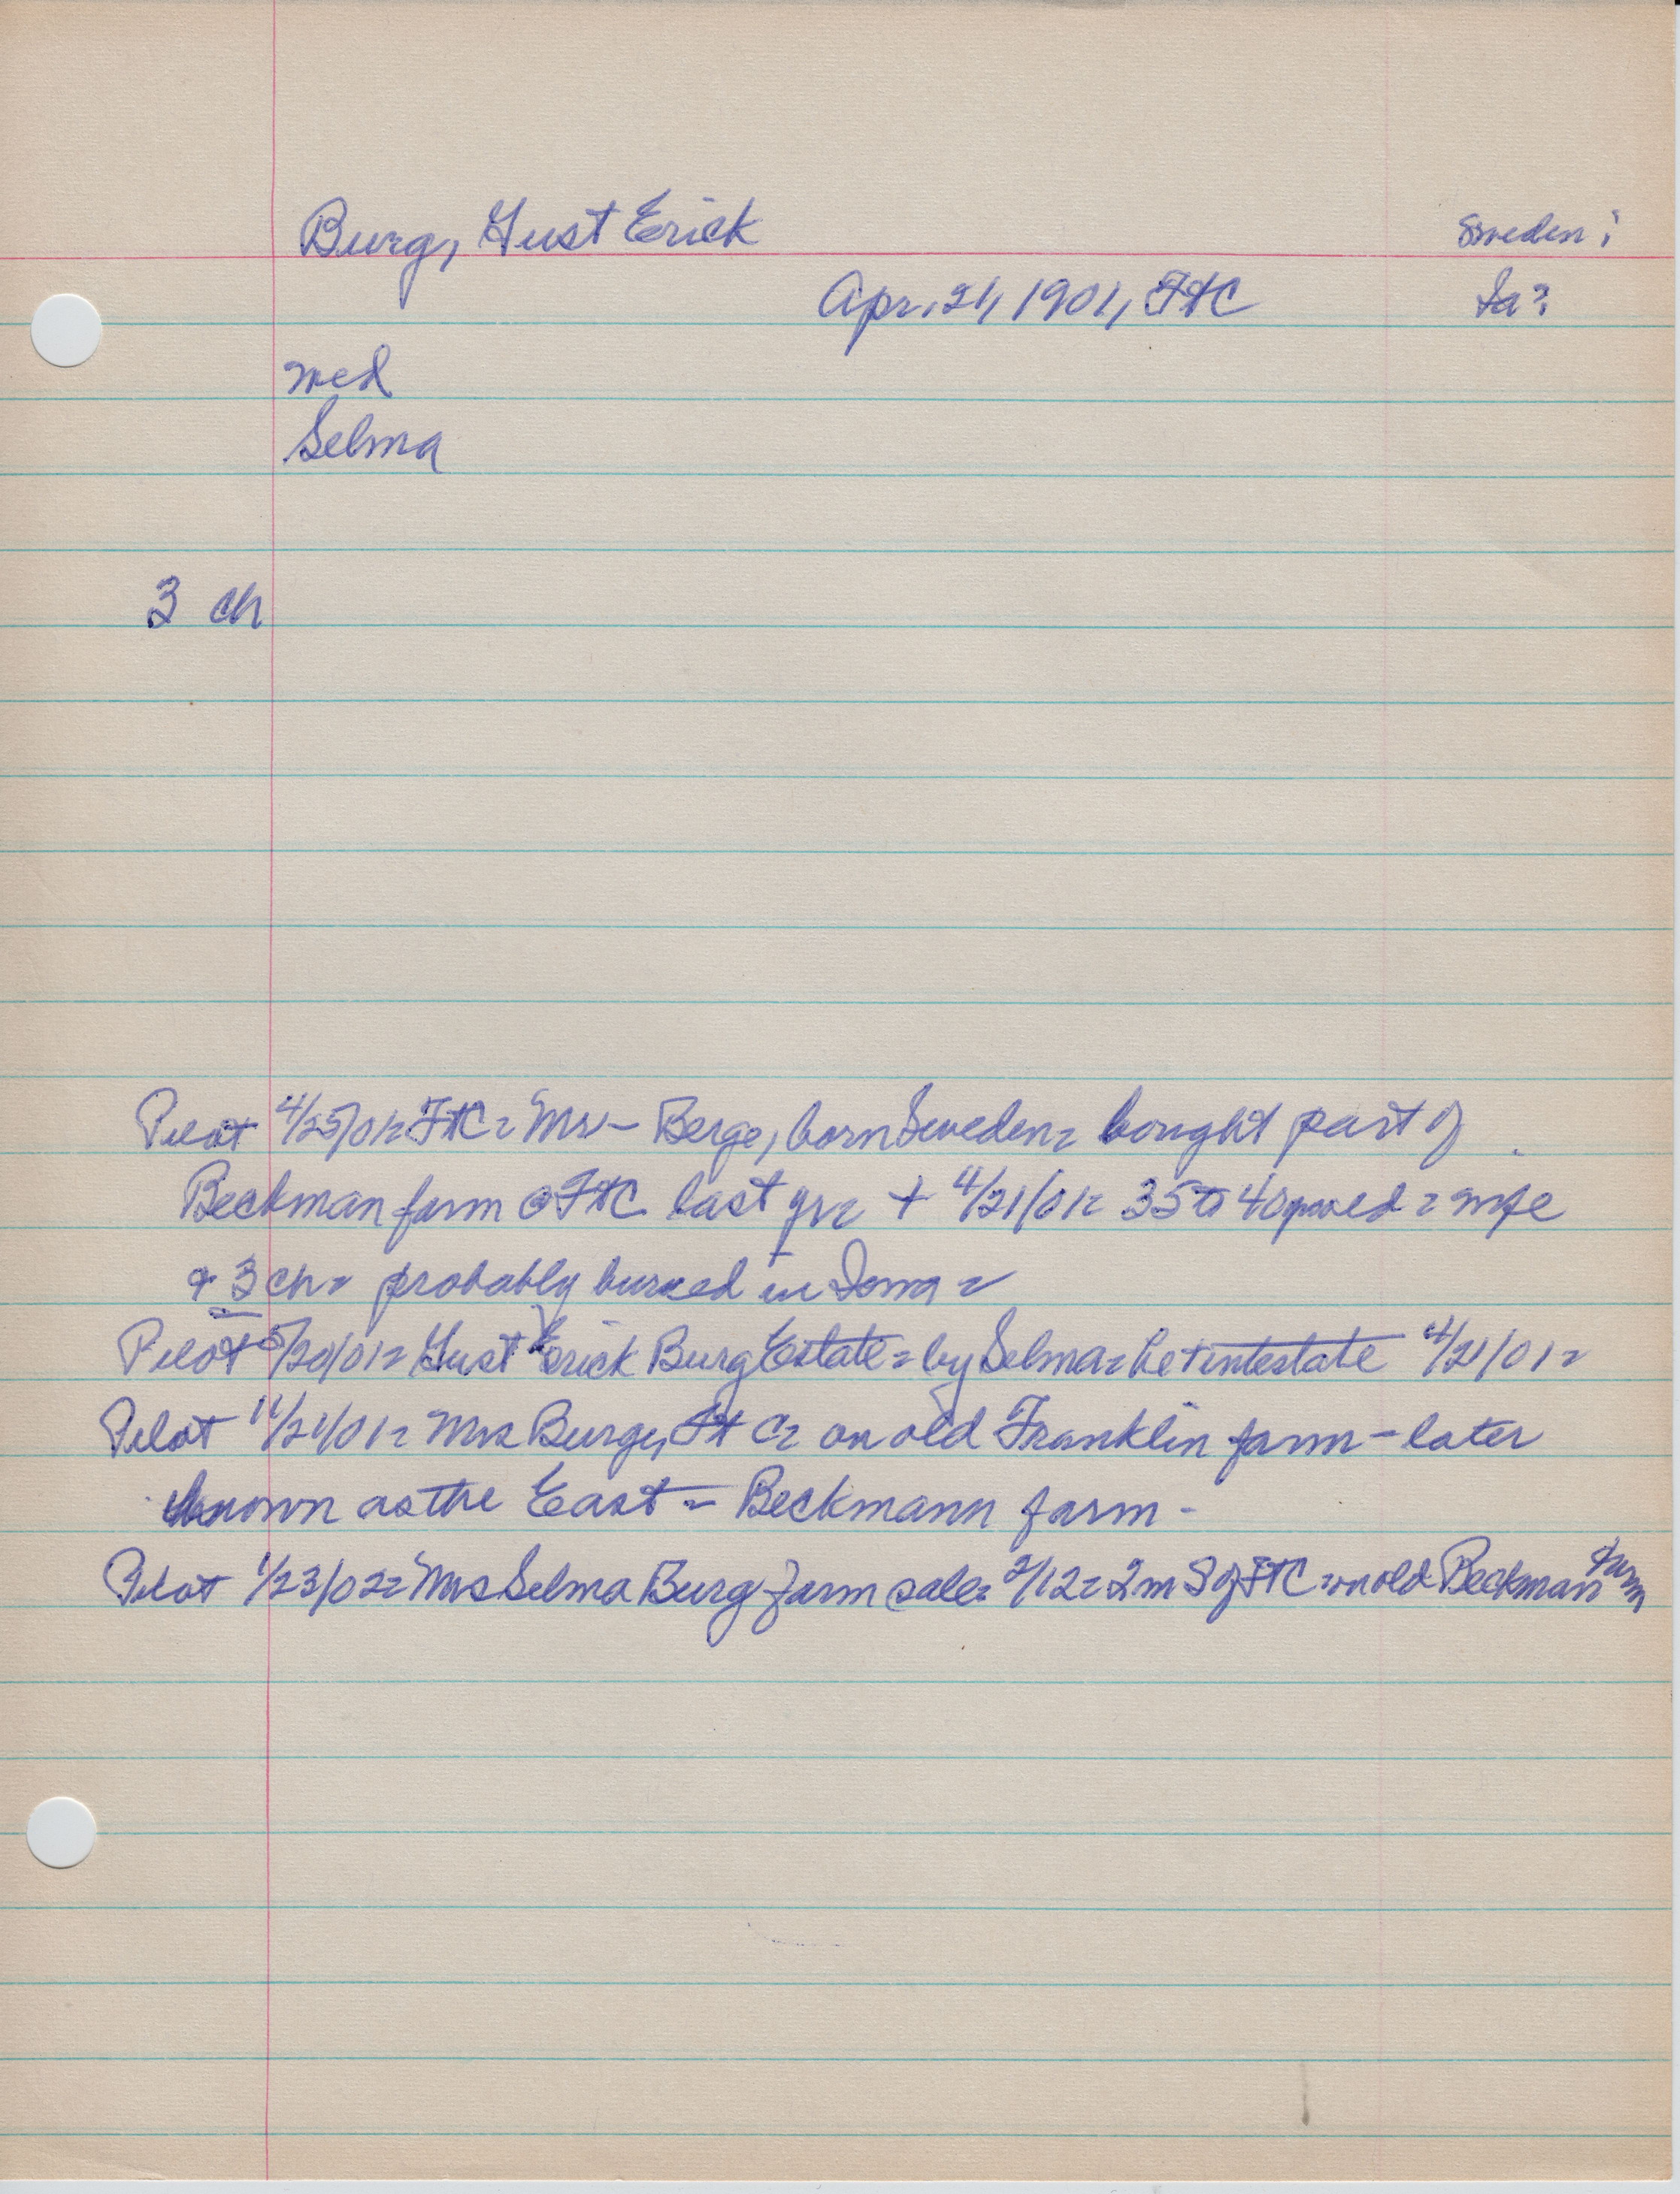 Burg, Gust Erick
Sweden;
Apr. 21, 1901, FtC
Ia?
med
Selma
3 ch
Pilot 4/25/01= FtC= Mr - Berge, born Sweden= bought part of
Beckman farm @ FtC last yr= + 4/21/01= 35 to 40 = wife
+ 3 ch= probably buried in Iowa=
Pilot 5/20/01= Gust Erick Burg Estate= by Selma= he + intestate 4/21/01=
Pilot 11/21/01= Mrs Burge, Ft C= on old Franklin farm - later
known as the East = Beckmann farm -
Pilot 1/23/02= Mrs Selma Burg farm sale= 2/12= 2m S of FtC = on old Beckman farm